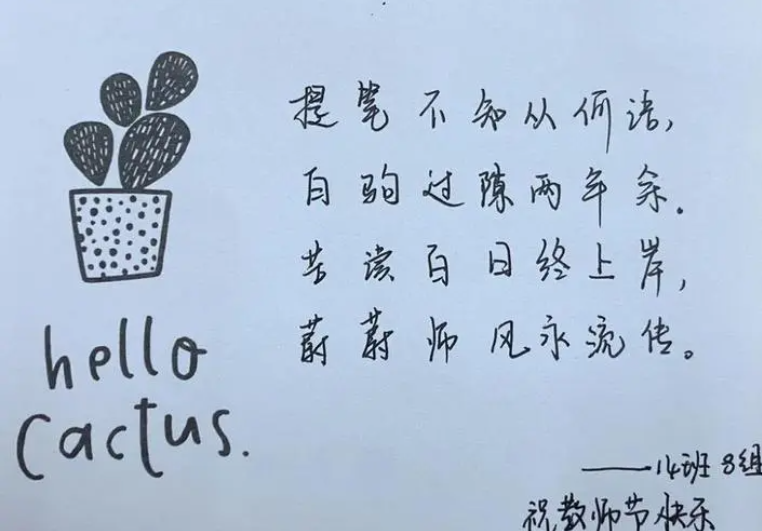 提笔不知从何语，
白驹过隙两年余.
苦读百日终上岸，
蔚蔚师风永流传。
hello
cactus.
——14班 8组
祝教师节快乐